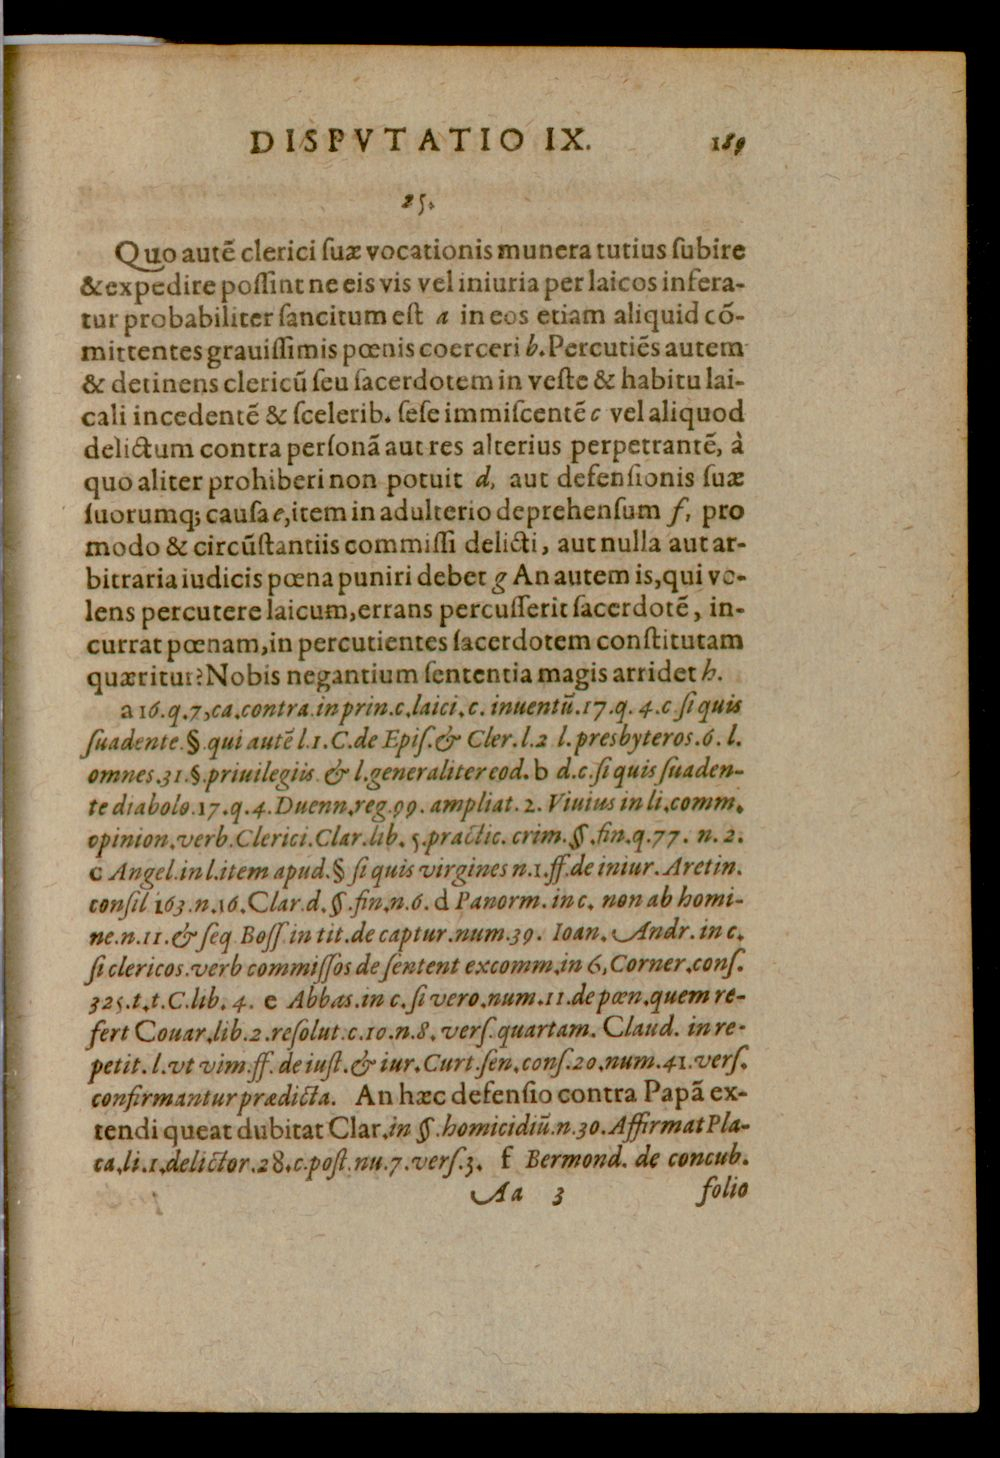 DISPVTATIO IX. 189
25.
Quo autẽ clerici suæ vocationis munera tutius subire
& expedire possint ne eis vis vel iniuria per laicos infera-
tur probabiliter sancitum est a in eos etiam aliquid cõ-
mittentes grauissimis pœnis coerceri b. Percutiẽs autem
& detinens clericũ seu sacerdotem in veste & habitu lai-
cali incedentẽ & scelerib. sese immiscentẽ c vel aliquod
delictum contra personã aut res alterius perpetrantẽ, à
quo aliter prohiberi non potuit d, aut defensionis suæ
suorumq; causa e, item in adulterio deprehensum f, pro
modo & circũstantiis commissi delicti, aut nulla aut ar-
bitraria iudicis pœna puniri debet g An autem is, qui vo-
lens percutere laicum, errans percusserit sacerdotẽ, in-
currat pœnam, in percutientes sacerdotem constitutam
quæritur? Nobis negantium sententia magis arridet h.
a 16. q. 7, ca. contra. in prin. c. laici. c. inuentũ. 17. q. 4. c si quis
suadente. §. qui autẽ l. 1. C. de Epis. & Cler. l. 2 l. presbyteros. 6. l.
omnes. 31. §. priuilegiis. & l. generaliter eod. b d. c. si quis suaden-
te diabolo. 17. q. 4. Duenn. reg. 99. ampliat. 2. Viuius in li. comm.
opinion. verb. Clerici. Clar. lib. 5. practic. crim. §. fin. q. 77. n. 2.
c Angel. in l. item apud. § si quis virgines n. 1. ff. de iniur. Aretin.
consil 163. n. 16. Clar. d. §. fin. n. 6. d Panorm. in c. non ab homi-
ne. n. 11. & seq. Boss. in tit. de captur. num. 39. Ioan. Andr. in c.
si clericos. verb commissos de sentent excomm. in 6, Corner. cons.
325. t. t. C. lib. 4. e Abbas. in c. si vero. num. 11. de pœn. quem re-
fert Couar. lib. 2. resolut. c. 10. n. 8. vers. quartam. Claud. in re-
petit. l. vt vim. ff. de iust. & iur. Curt. sen. cons. 20. num. 41. vers.
confirmantur prædicta. An hæc defensio contra Papã ex-
tendi queat dubitat Clar. in §. homicidiũ. n. 30. Affirmat Pla-
ca. li. 1. delictor. 28. c. post. nu. 7. vers. 3. f Bermond. de concub.
Aa 3 folio